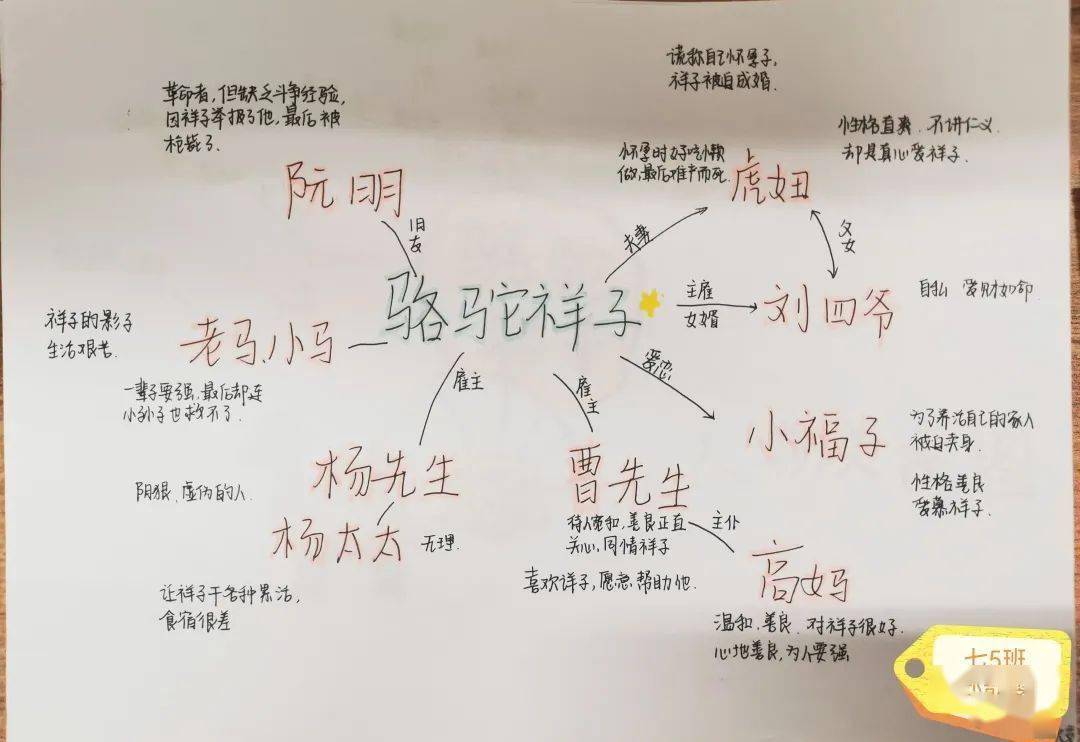 谎称自己怀孕了,
祥子被自成婚.
革命者,但缺乏斗争经验,
因祥子举报了他,最后被
枪毙了.
性格直爽.不讲仁义.
却是真心爱祥子.
怀孕时好吃懒
做,最后难产而死.
虎妞
阮明
旧友
夫妻
父女
骆驼祥子
主雇
女婿
刘四爷
自私 爱财如命
祥子的影子
生活艰苦.
老马、小马
一辈子要强,最后却连
小孙子也救不了.
雇主
雇主
爱恋
小福子
为了养活自己的家人
被自卖身.
性格善良
爱慕祥子.
杨先生
阴狠、虚伪的人.
杨太太
无理.
让祥子干各种累活,
食宿很差
曹先生
待人宽和,善良正直
关心,同情祥子
喜欢祥子,愿意帮助他.
主仆
高妈
温和,善良.对祥子很好.
心地善良,为人要强
七5班